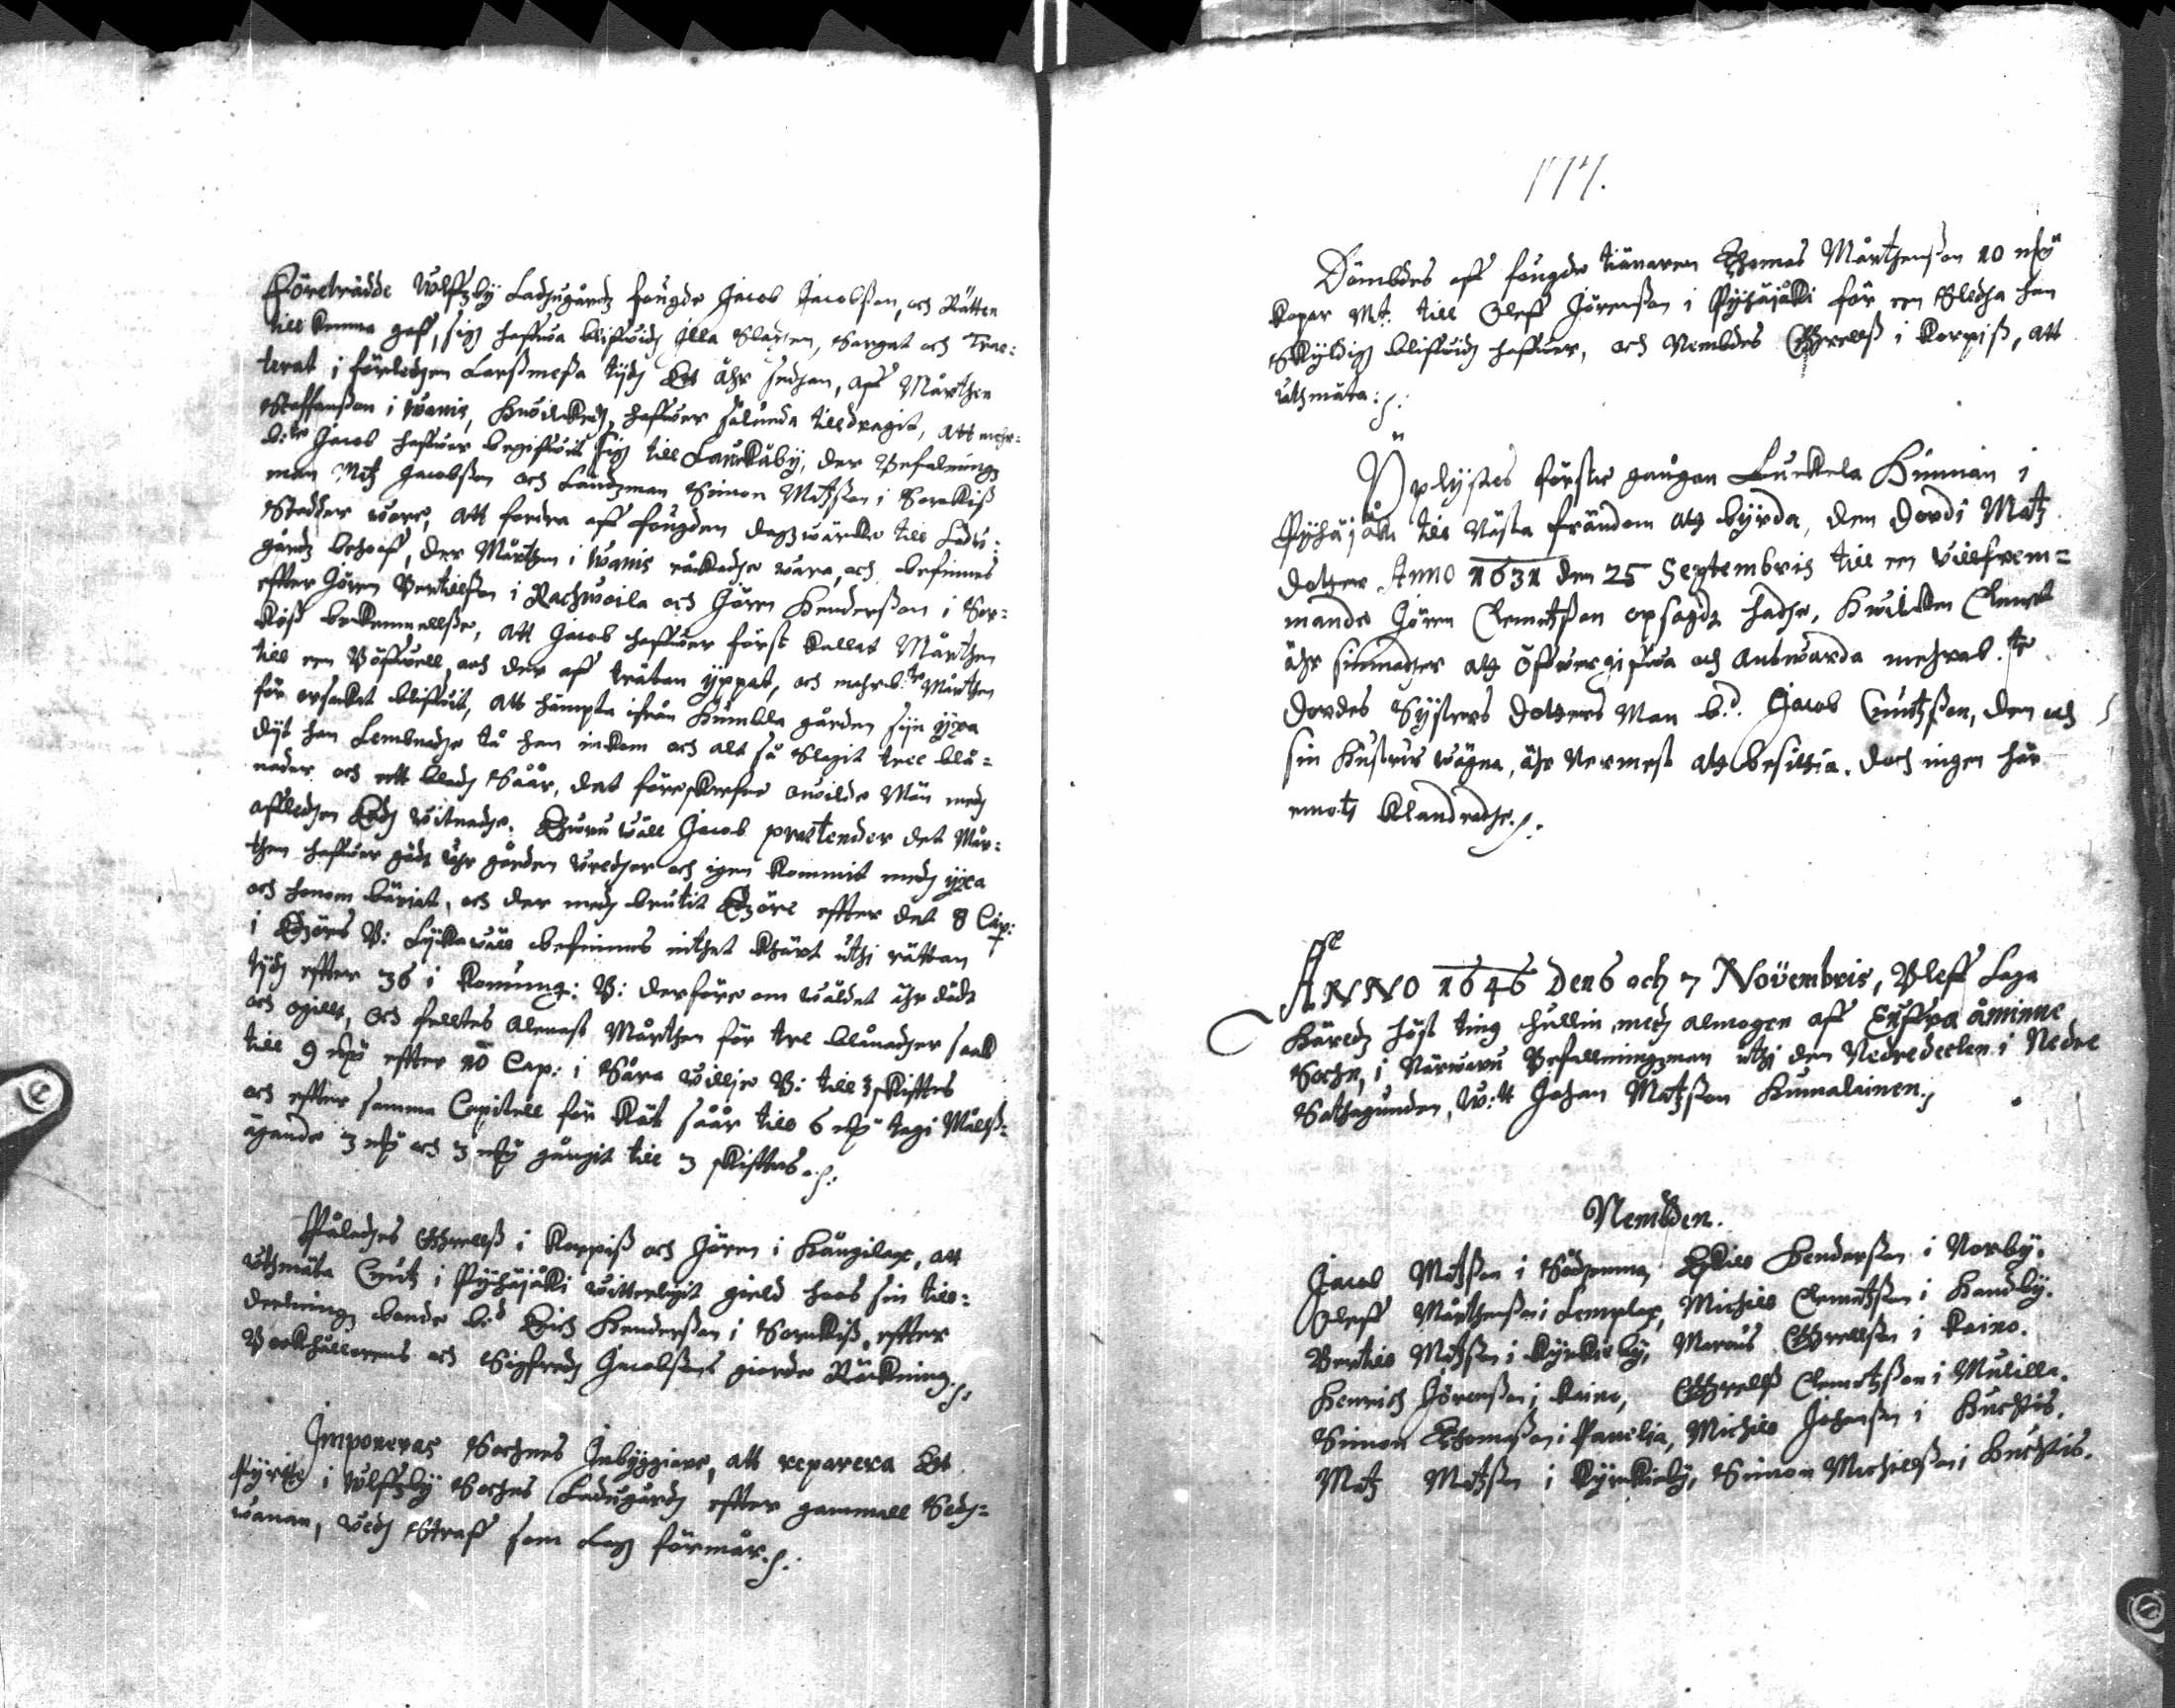 Företrädde Wlfzby Ladugårdz fougde Jacob Jacobsson, och Rätten
till kenna gaf, sig haffwa bliffwidz illa Slagen, Sargat och Trac:
terat i förledjen Larsmesa tijdz Ett åhr sedjan, aff Mårthen
Staffansson i Wanis, huilkedz haffwer sålunda tilldragit, att mehr=
b:te Jacob haffwer begiffwit sig till Lauckåby, der Befalningz
man Mtz Jacobsson och Landzman Simon Mtzson i Sorckis
Stadder wore, att fordra aff fougden dagzwärcke till Ladu:
gårdz behoff, der Mårthen i Wanis råckadhe wara, och befinnes
effter Jören Bertillson i Rachwoila och Jören Hendersson i Sor=
kiss bekennellsse, att Jacob haffwer först kallat Mårthen
till een Böffwell, och der af träten yppat, och mehrb:te Mårthen
för orsakat bliffwit, att hämpta ifrån Humbla gården sijn yxa
dijt han Lembnadhe tå han inkom och alt så Slagit tree blå=
nader och ett bladz Såår, det föreskrefne owilde Män medz
afledjen Edz witnadhe. Ehuru wäll Jacob prætender det Mår=
then haffwer gådt uhr gården wredjer och igen kommit medz yxa
och honom bäriat, och der medz brutit Edzöre effter det 8 Cap:
i Edzöres B: Lijkawäll befinnes inthet kärt uthi rättan
tijdz effter 36 i Konung: B: derföre om wåldet ähr dödt
och ogillt, och felltes alenast Mårthen för tre blånadher saak
till 9 mk effter 10 Cap: i Såra willje B: till 3skifftes
och effter samma Capitell för köt såår till 6 mk tagi Målss=
ägande 3 mk och 3 mk gångit till 3 skifftes.
Påladjes Grells i Korpiss och Jören i Kångilax, att
uthmäta Cnutz i Pyhäjåki witterligit gield hoos sin till=
deelning bonde b:d Erich Hendersson i Sorckiss, effter
Bookhållerens och Sigfredz Jacobssons giorde Räckning.
Imponeras Sochnes Inbyggiare, att reparera Ett
Pyrtte i Wlfzby Sochns Ladugårdz effter gammall Sedz=
wanan, wedz Straff som Lag förmår.
Dömbdes aff fougde tiänaren Thomas Mårthensson 10 mk
kopar Mt. till Oleff Jörensson i Pyhäjåki för een Sledja han
Skyldig bliffwidz haffwer, och Nembdes Grells i Korpiss, att
uthmäta:
Uplystes förste gången Luckela Hemman i
Pyhäjåki till Nästa frändom att byrda, dem Dordi Matz
dotter Anno 1631 den 25 Septembris till een Villfrem=
mande Jören Clemetzson opsagdt hadhe, huilken Clemet
ähr sinnadher att öffwergiffwa och antwarda mehrb:te
Dordes Systers dotters Man b:d Jacob Cnutzson, dem och
sin hustrus wägna, ähr Nermest att besittia. doch ingen här
emotz klandradhe.
ANNO 1646 Den 6 och 7 Novembris, Bleff Laga
häredz höst ting hullin medz almogen aff Euffra åminne
Sochn, i Närwaru Befallningzman uthi den Nedredeelen i Nedre
Satagunden, W:tt Johan Matzson Humalainen.
Nembden.
Jacob Mtzson i Södjenma, Eskill Hendersson i Norby.
Oleff Mårthensson i Lemplax, Michill Clemetzson i Handby.
Bertill Mtzson i Kyrkieby, Marcus Grellson i Kaino.
Henrich Jörensson i Kaino, Grells Clemetzson i Mulilla.
Simon Thomasson i Panelia, Michill Johansson i Huchtis.
Matz Matzson i Kyrkieby, Simon Michillsson i Huchtis.